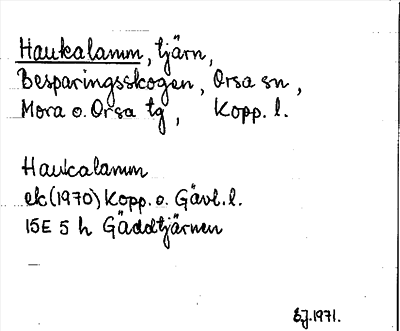 Haukalamm, tjärn,
Besparingsskogen, Orsa sn,
Mora o. Orsa tg, Kopp. l.
Haukalamm
ek (1970) Kopp. o. Gävl. l.
15E 5 h Gäddtjärnen
EJ. 1971.